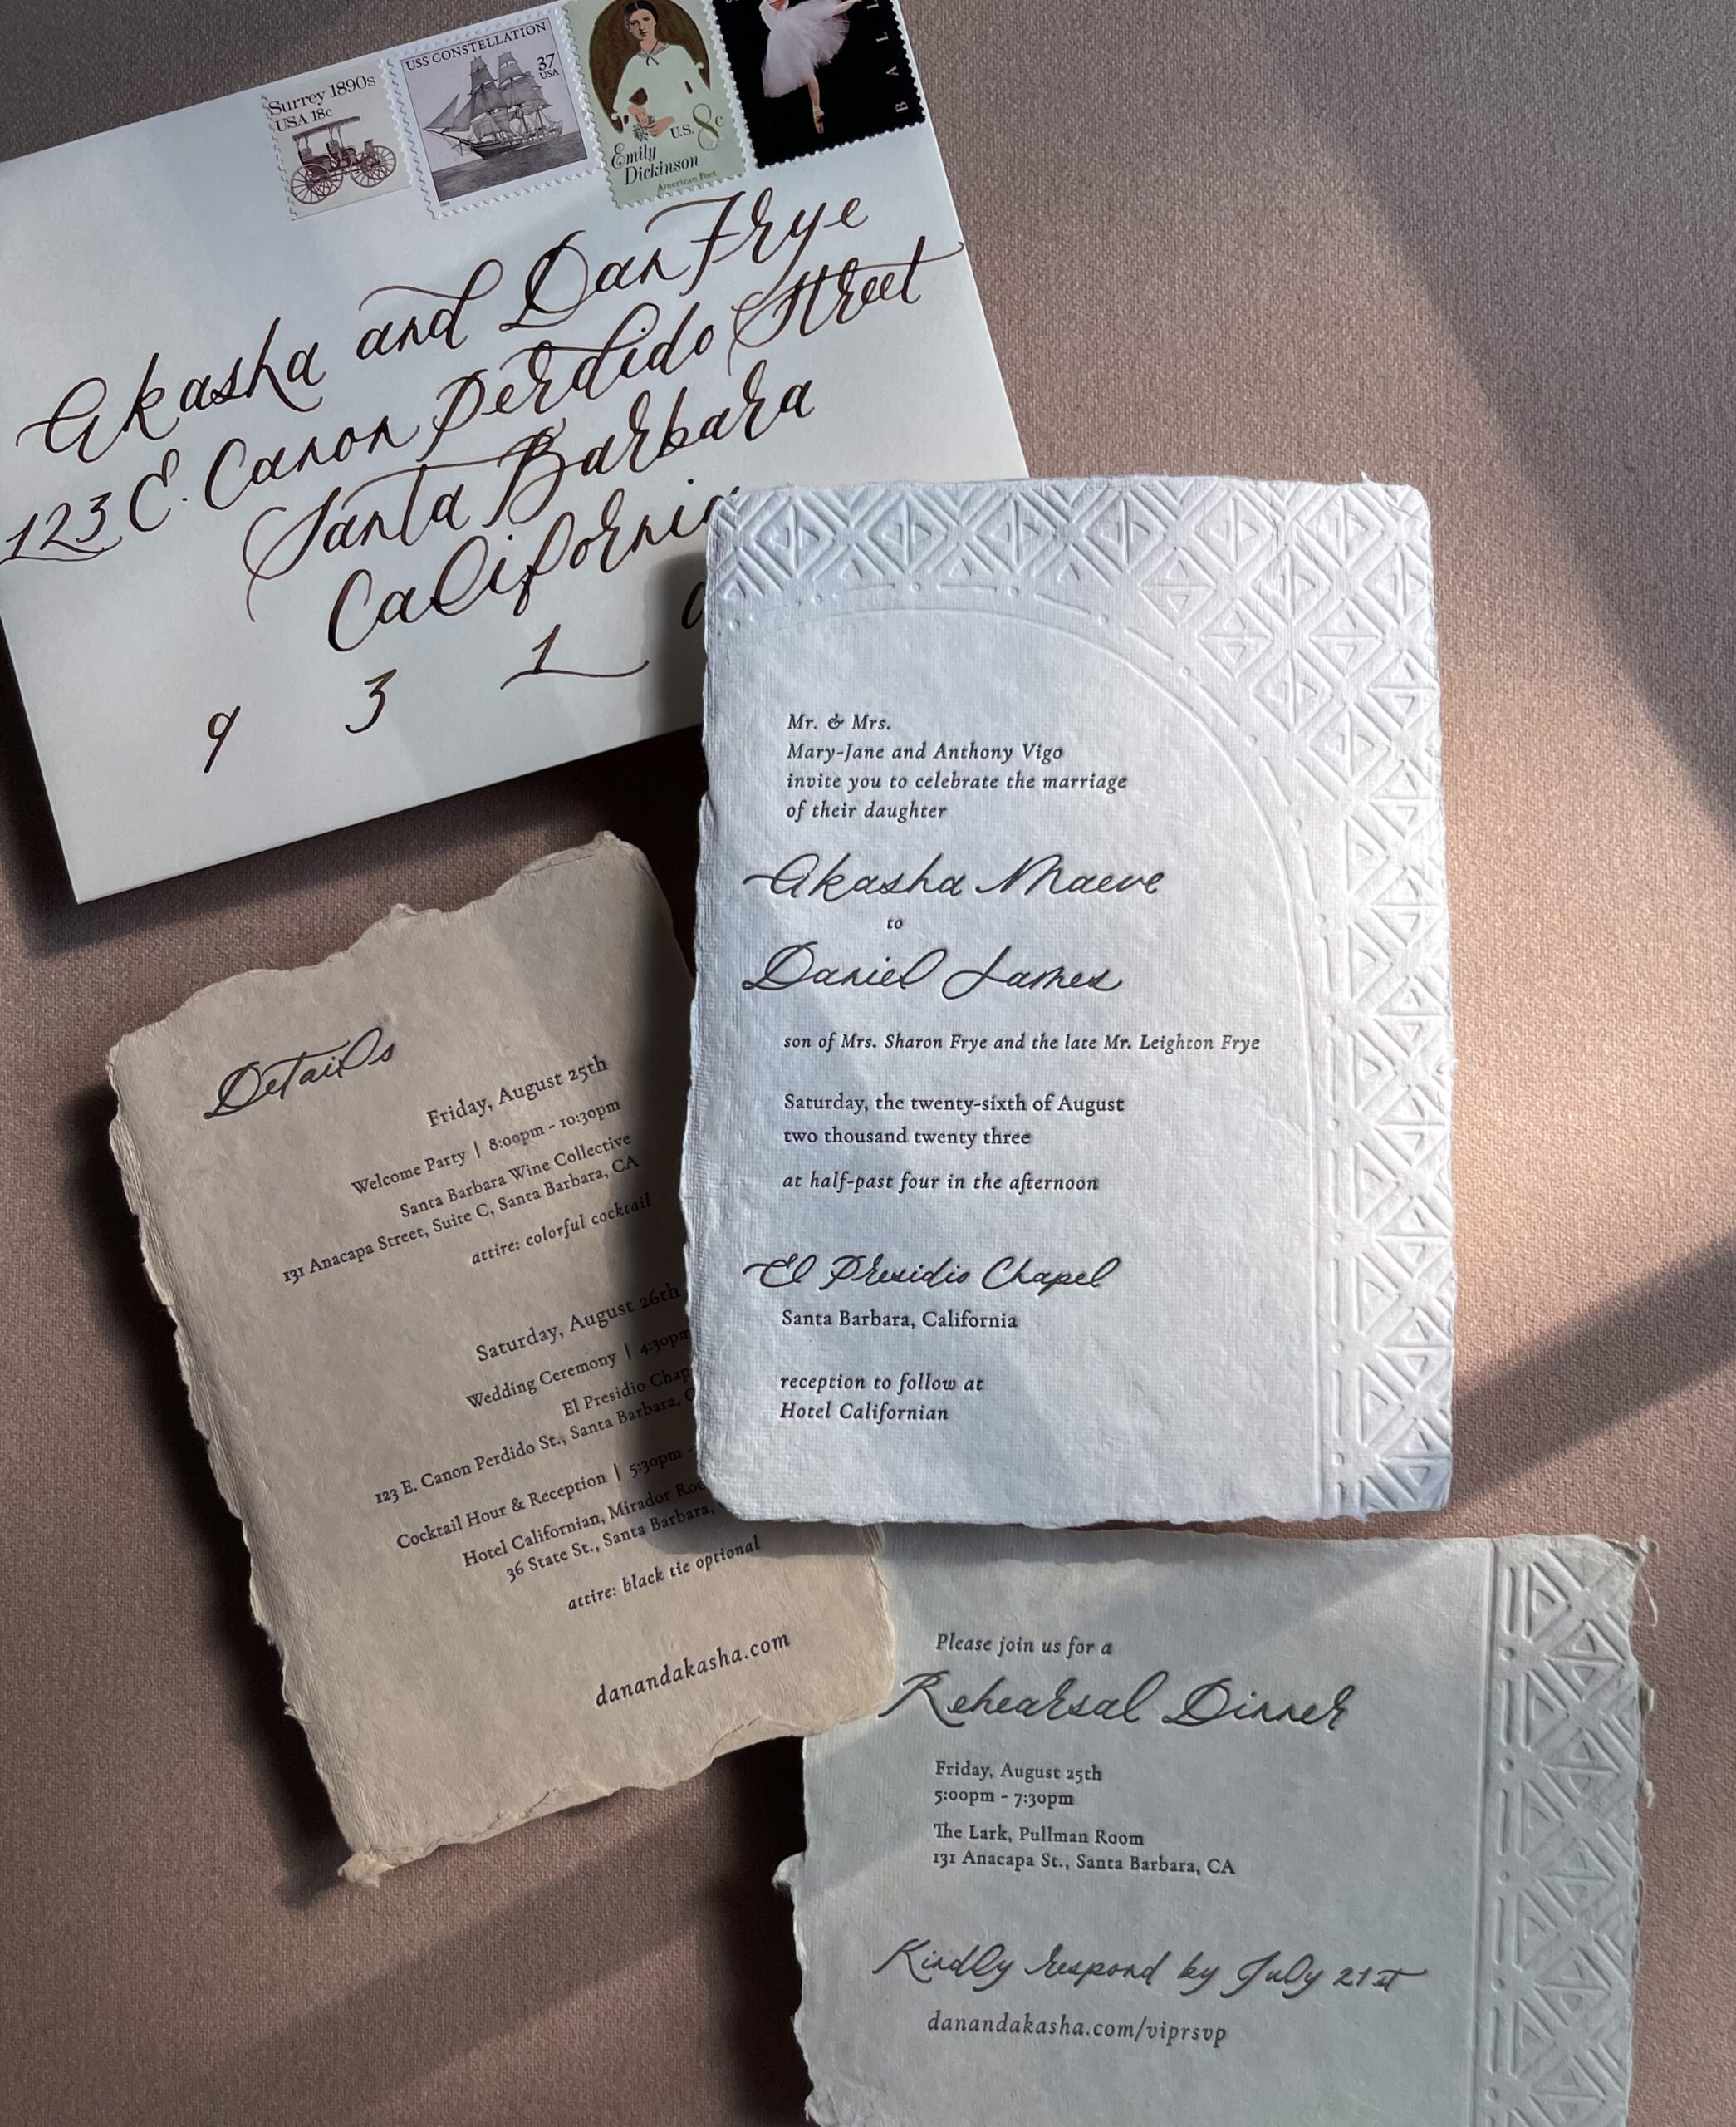 Surrey 1890s
USA 18c
USS CONSTELLATION
37
USA
U.S. 8c
Emily
Dickinson
American Poet
Akasha and Dan Frye
123 E. Canon Perdido Street
Santa Barbara
California
9 3 1
Mr. & Mrs.
Mary-Jane and Anthony Vigo
invite you to celebrate the marriage
of their daughter
Akasha Maeve
to
Daniel James
son of Mrs. Sharon Frye and the late Mr. Leighton Frye
Saturday, the twenty-sixth of August
two thousand twenty three
at half-past four in the afternoon
El Presidio Chapel
Santa Barbara, California
reception to follow at
Hotel Californian
Details
Friday, August 25th
Welcome Party | 8:00pm - 10:30pm
Santa Barbara Wine Collective
131 Anacapa Street, Suite C, Santa Barbara, CA
attire: colorful cocktail
Saturday, August 26th
Wedding Ceremony | 4:30pm
El Presidio
123 E. Canon Perdido St., Santa Barbara,
Cocktail Hour & Reception | 5:30pm -
Hotel Californian, Mirador
36 State St., Santa Barbara,
attire: black tie optional
danandakasha.com
Please join us for a
Rehearsal Dinner
Friday, August 25th
5:00pm - 7:30pm
The Lark, Pullman Room
131 Anacapa St., Santa Barbara, CA
Kindly respond by July 21st
danandakasha.com/viprsvp